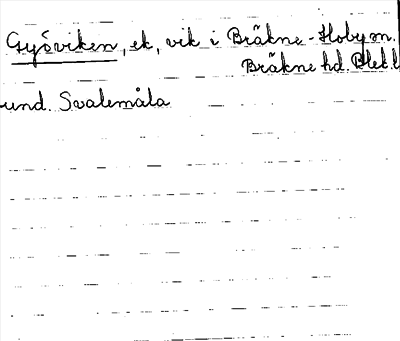 Gyöviken, ek, vik i Bräkne-Hoby sn.
Bräkne hd. Blek. l
und. Svalemåla